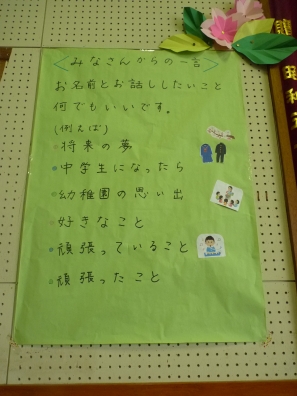 ＜みなさんからの一言＞
お名前とお話ししたいこと
何でもいいです。
(例えば)
・将来の夢
・中学生になったら
・幼稚園の思い出
・好きなこと
・頑張っていること
・頑張ったこと